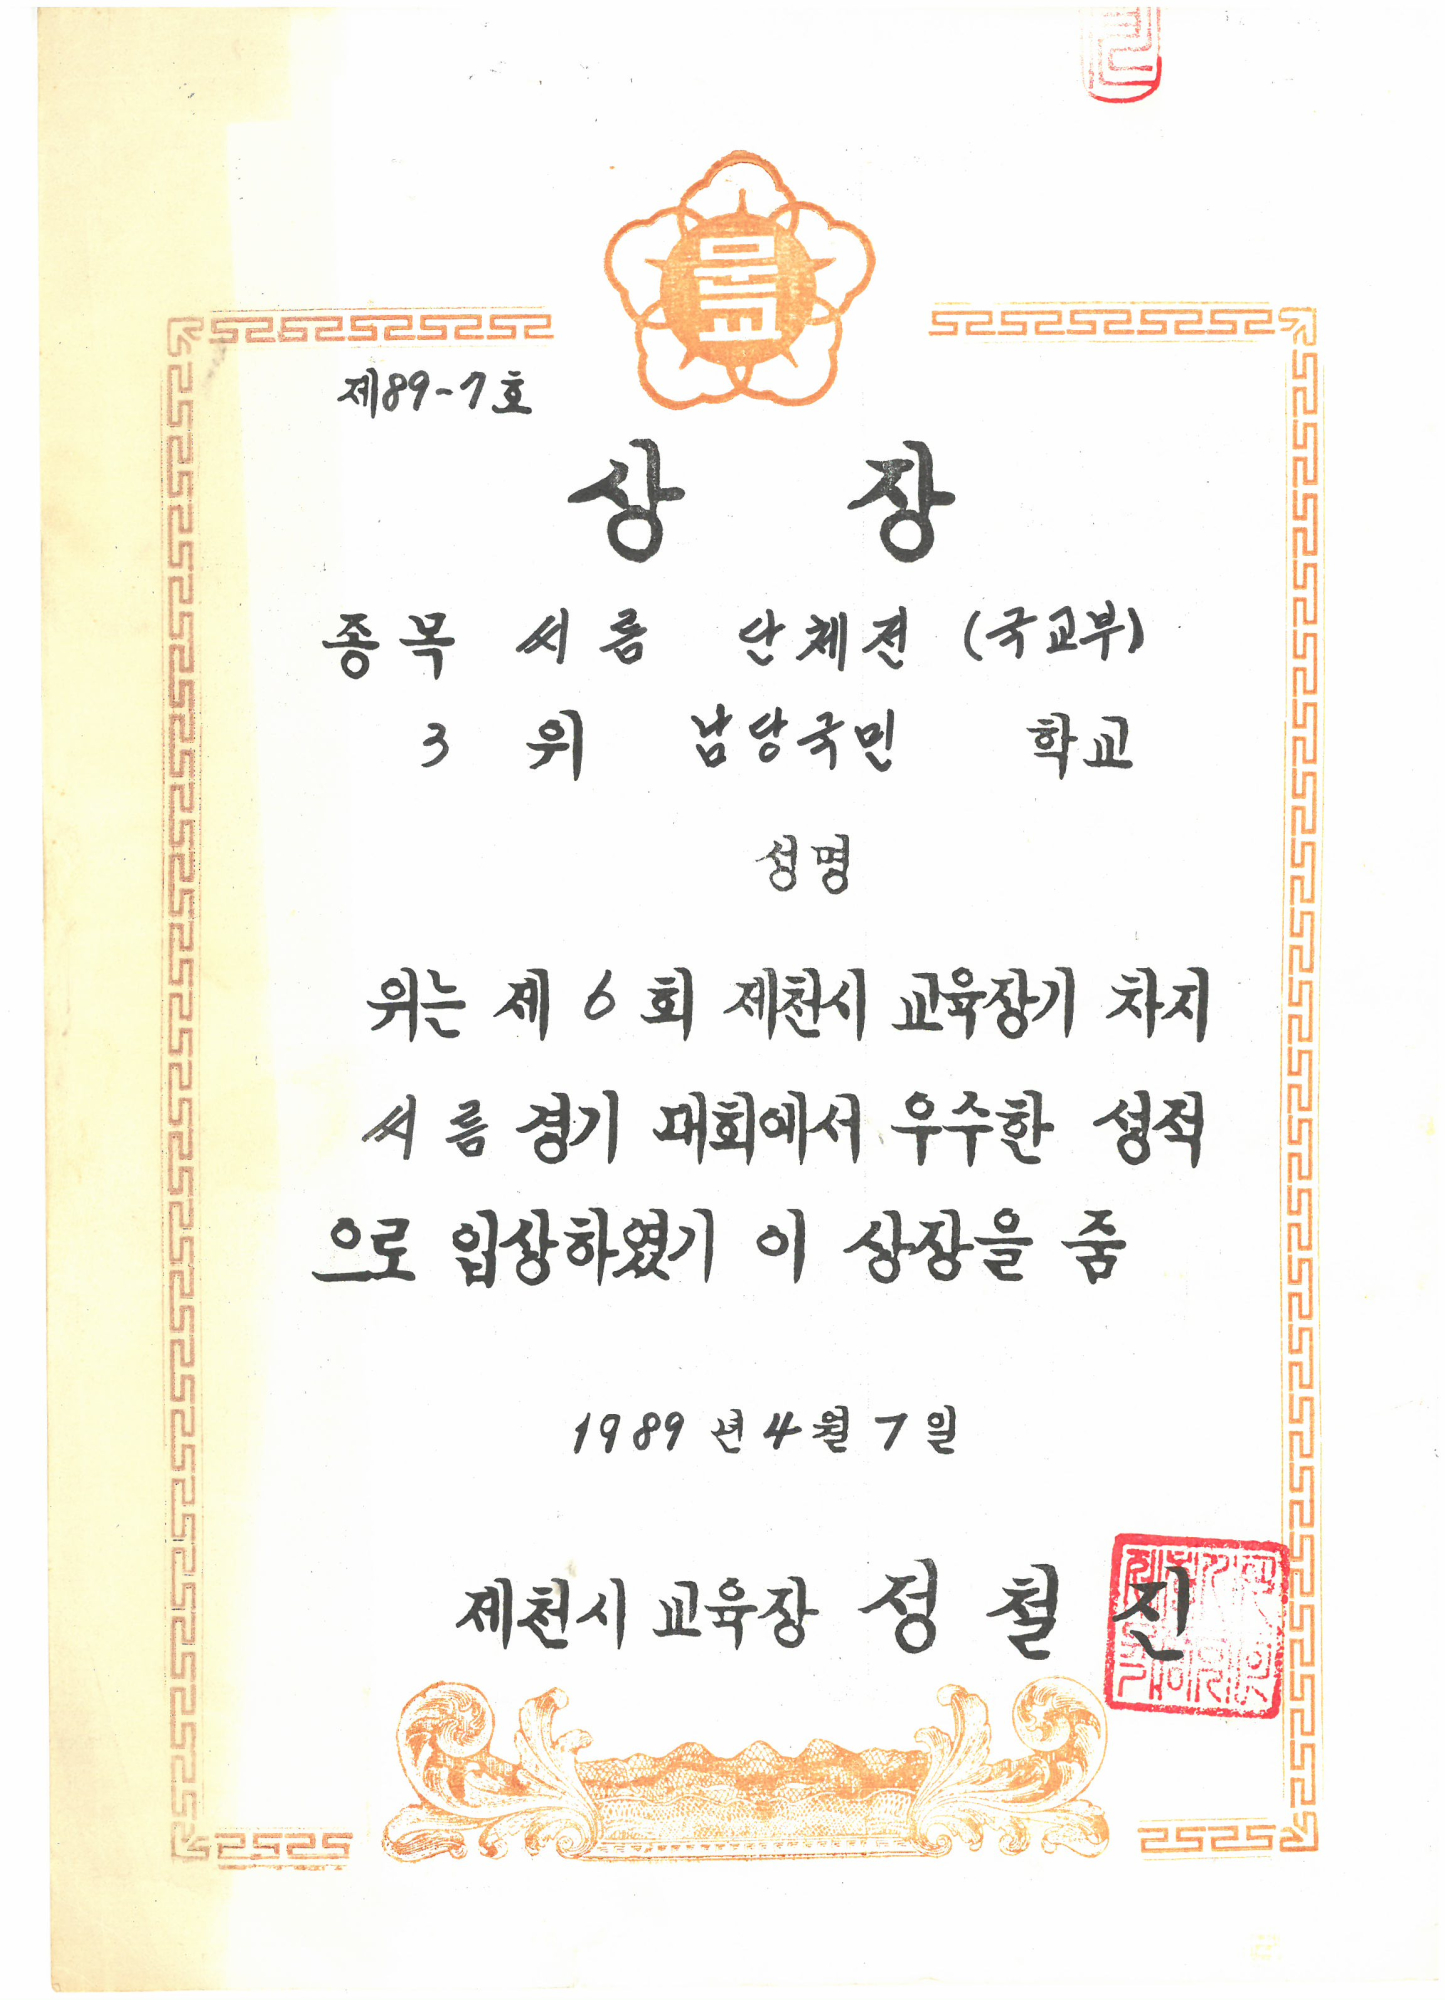 문교
제89-7호
상 장
종목 씨름 단체전 (국교부)
3 위 남당국민 학교
성명
위는 제 6 회 제천시 교육장기 차지
씨름 경기 대회에서 우수한 성적
으로 입상하였기 이 상장을 줌
1989 년 4 월 7 일
제천시 교육장 성 철 진